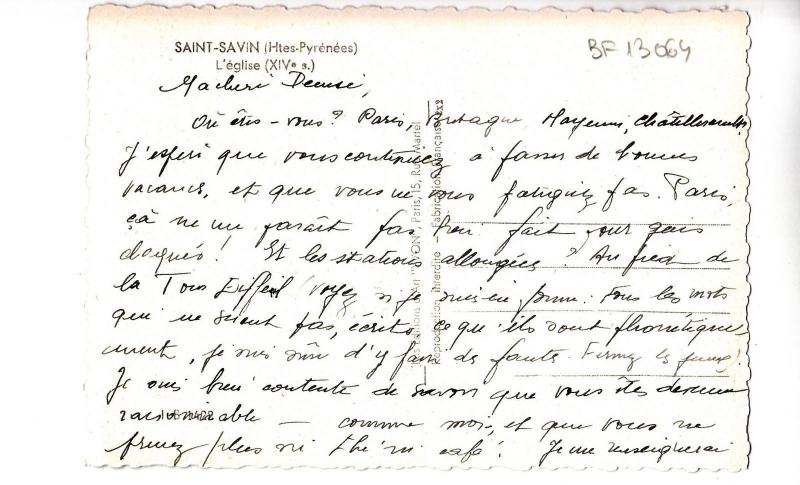 SAINT-SAVIN (Htes-Pyrénées)
L'église (XIVe s.)
BF 13064
Ma chérie Denise,
Où êtes-vous? Paris, Bretagne Mayenne, Châtellerault.
J'espère que vous continuez à passer de bonnes
vacances, et que vous ne vous fatiguez pas. Paris,
çà ne me paraît pas bien fait pour
! Et les stations allongées? Au pied de
la Tour Eiffel (voyez si je suis en forme. Tous les mots
qui ne sont pas, écrits, ce qu'ils sont phonétique-
ment, je suis sûr d'y faire des fautes. Fermez les
Je suis bien contente de savoir que vous êtes devenue
raisonnable — comme moi, et que vous ne
prenez plus ni thé ni café! Je me renseignerai
Editions d'Art "YVON" Paris, 15, Rue Martel
Reproduction interdite — Fabrication Française